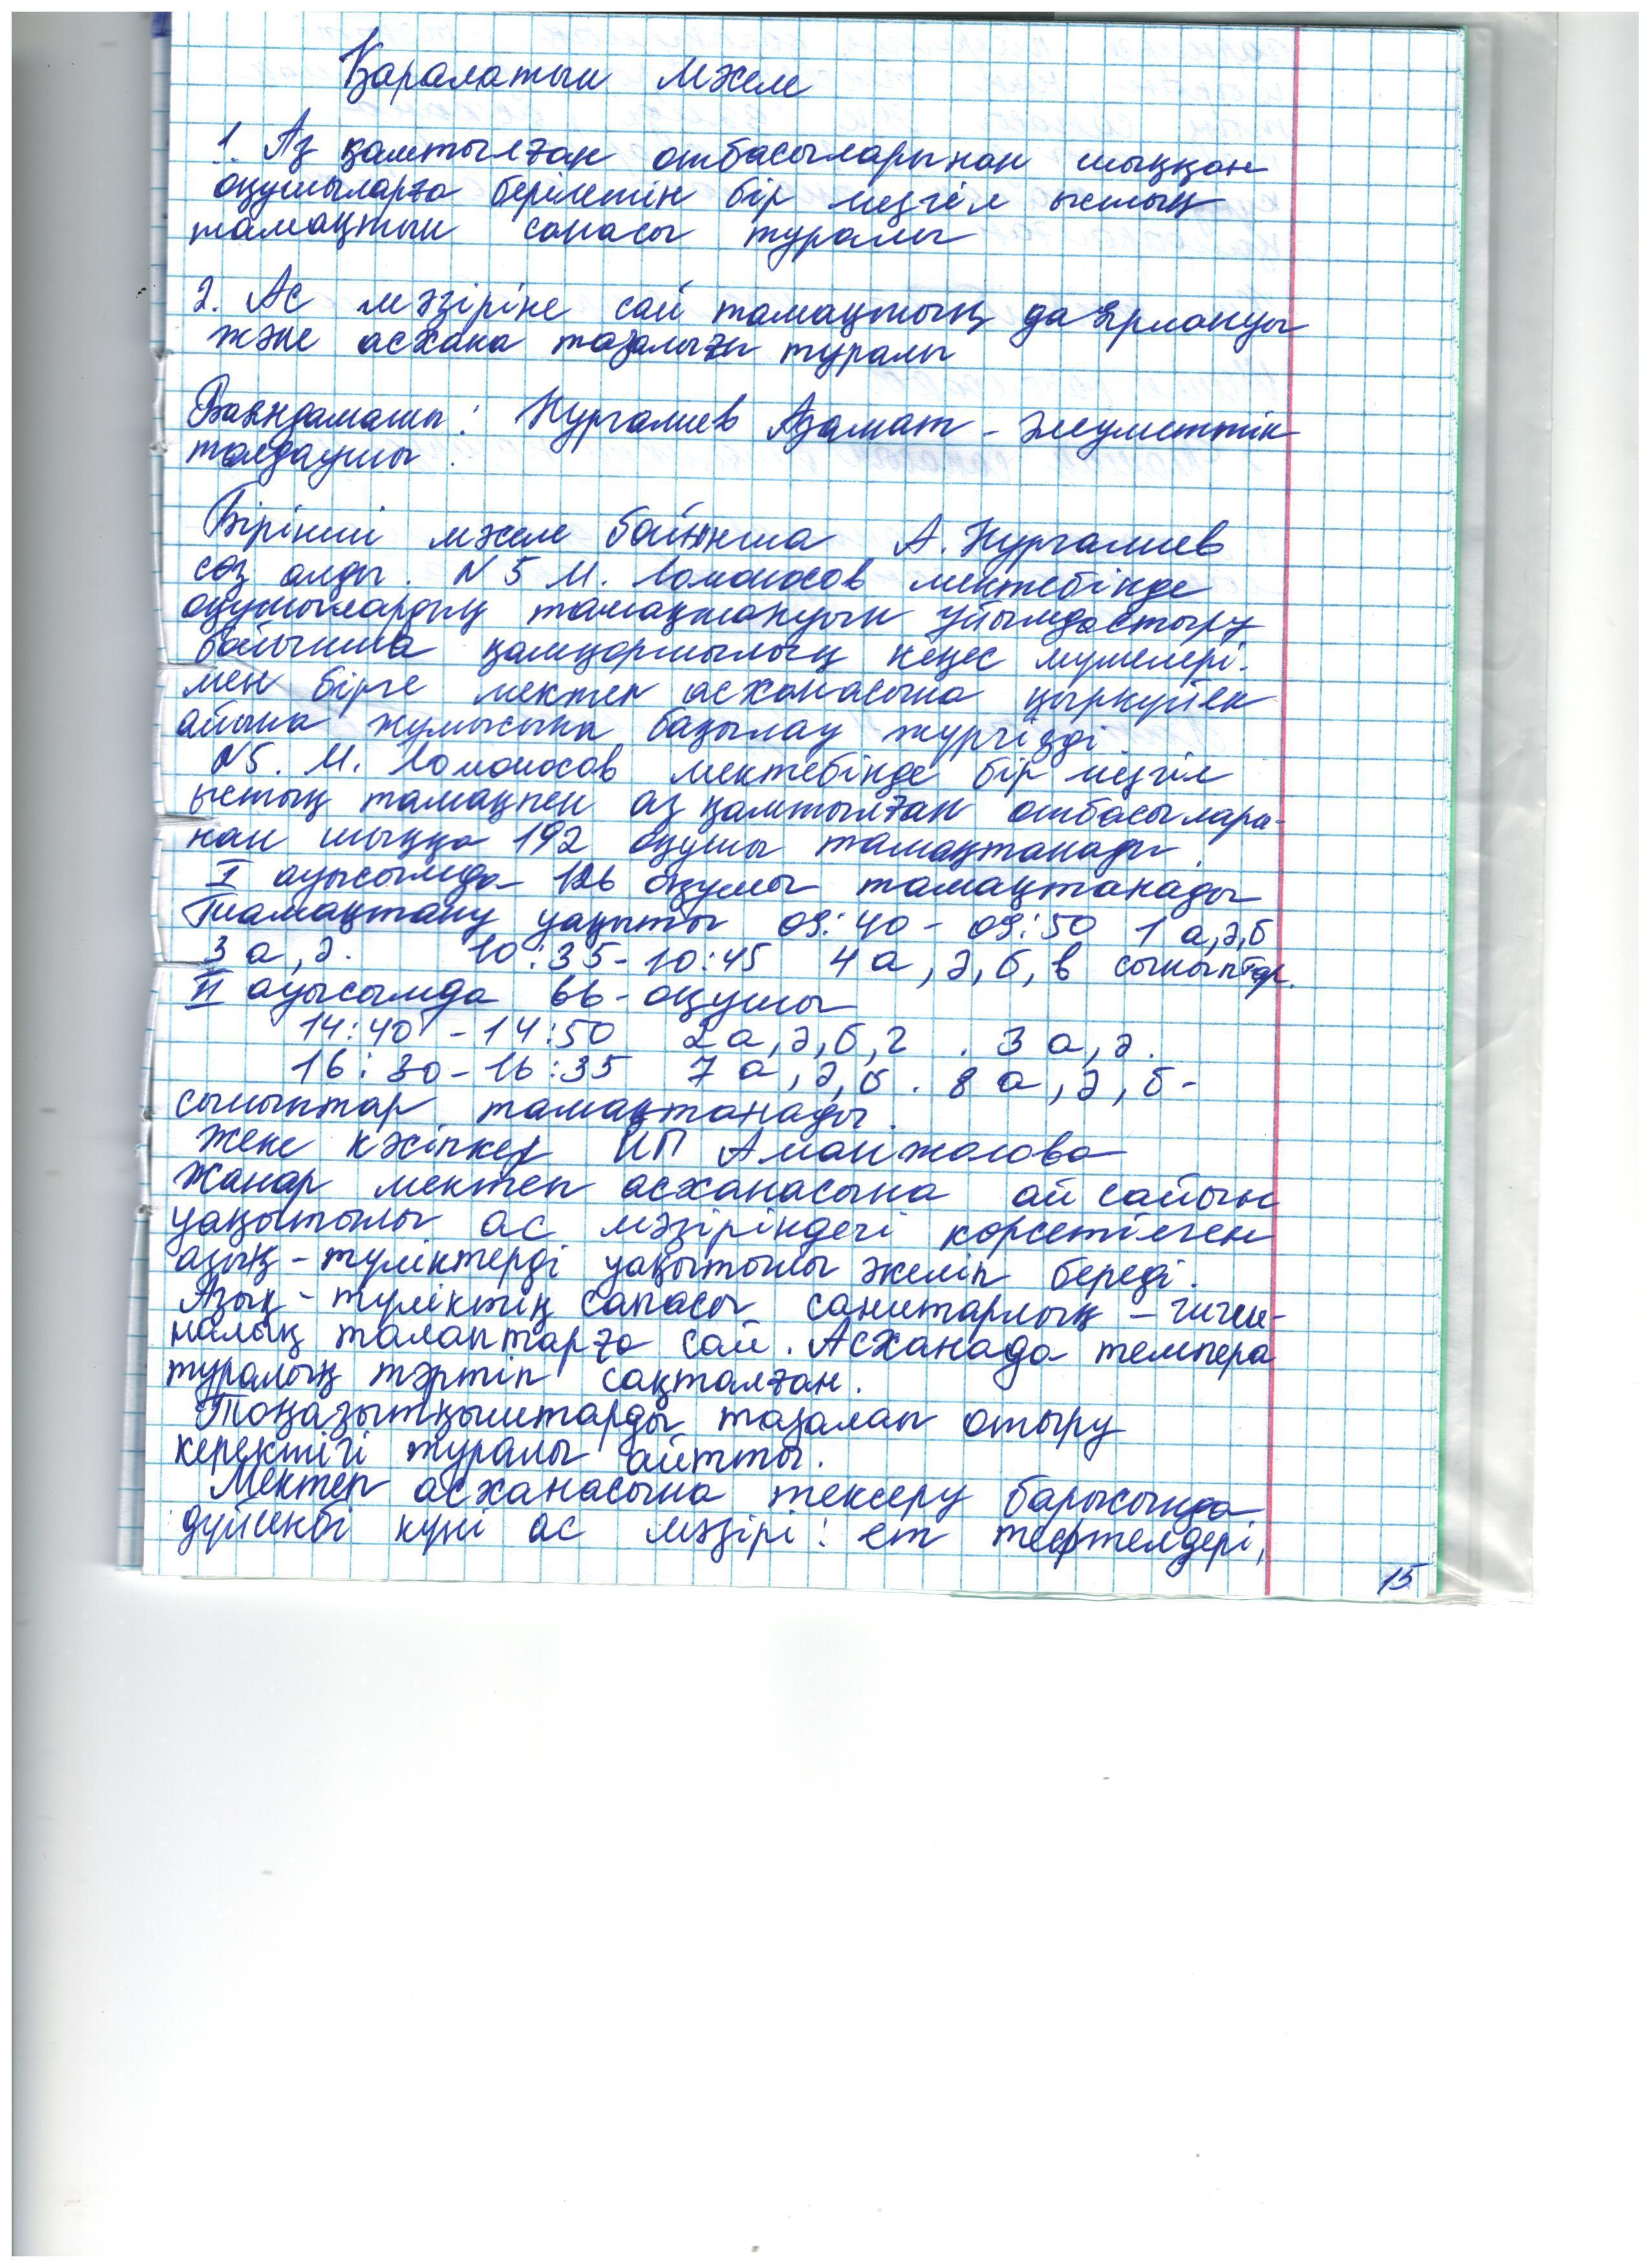 Қаралатын мәселе
1. Аз қамтылған отбасыларынан шыққан
оқушыларға берілетін бір мезгіл ыстық
тамақтын сапасы туралы
2. Ас мәзіріне сай тамақтың даярлануы
және асхана тазалығы туралы
Баяндамашы: Нургалиев Азамат - әлеуметтік
талдаушы.
Бірінші мәселе бойынша А. Нургалиев
сөз алды. N 5 М. Ломоносов мектебінде
оқушылардың тамақтануын ұйымдастыру
бойынша қамқоршылық кеңес мүшелері-
мен бірге мектеп асханасына қыркүйек
айына жұмысына бақылау жүргізді.
N5. М. Ломоносов мектебінде бір мезгіл
ыстық тамақпен аз қамтылған отбасылара-
нан шыққа 192 оқушы тамақтанады.
I ауысымда 126 оқушы тамақтанады
Тамақтану уақыты 09:40 - 09:50 1 а,ә,б
3 а,ә. 10:35-10:45 4 а,ә,б,в сыныптар.
II ауысымда 66-оқушы
14:40 - 14:50 2 а,ә,б,г . 3 а,ә.
16:30-16:35 7 а,ә,б. 8 а,ә,б-
сыныптар тамақтанады.
Жеке кәсіпкер ИП Аманжолова
Жанар мектеп асханасына ай сайын
уақытылы ас мәзіріндегі көрсетілген
азық-түліктерді уақытылы әкеліп береді.
Азық-түліктің сапасы санитарлық - гигие-
налық талаптарға сай. Асханада темпера
туралық тәртіп сақталған.
Тоңазытқыштарды тазалап отыру
керектігі туралы айтты.
Мектеп асханасына тексеру барысында
дүйсенбі күні ас мәзірі: ет тефтелдері,
15